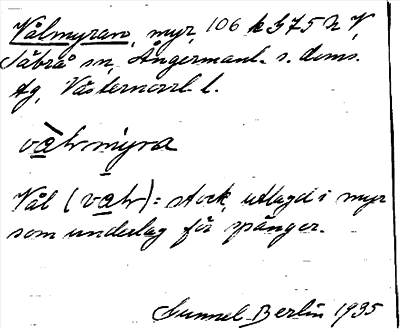 Vålmyran, myr, 106 k 375 h V,
Säbrå sn, Ångermanl. s. doms.
tg, Västernorrl. l.
Vål = stock, utlagd i myr
som underlag för spänger.
Gunnel Berlin 1935